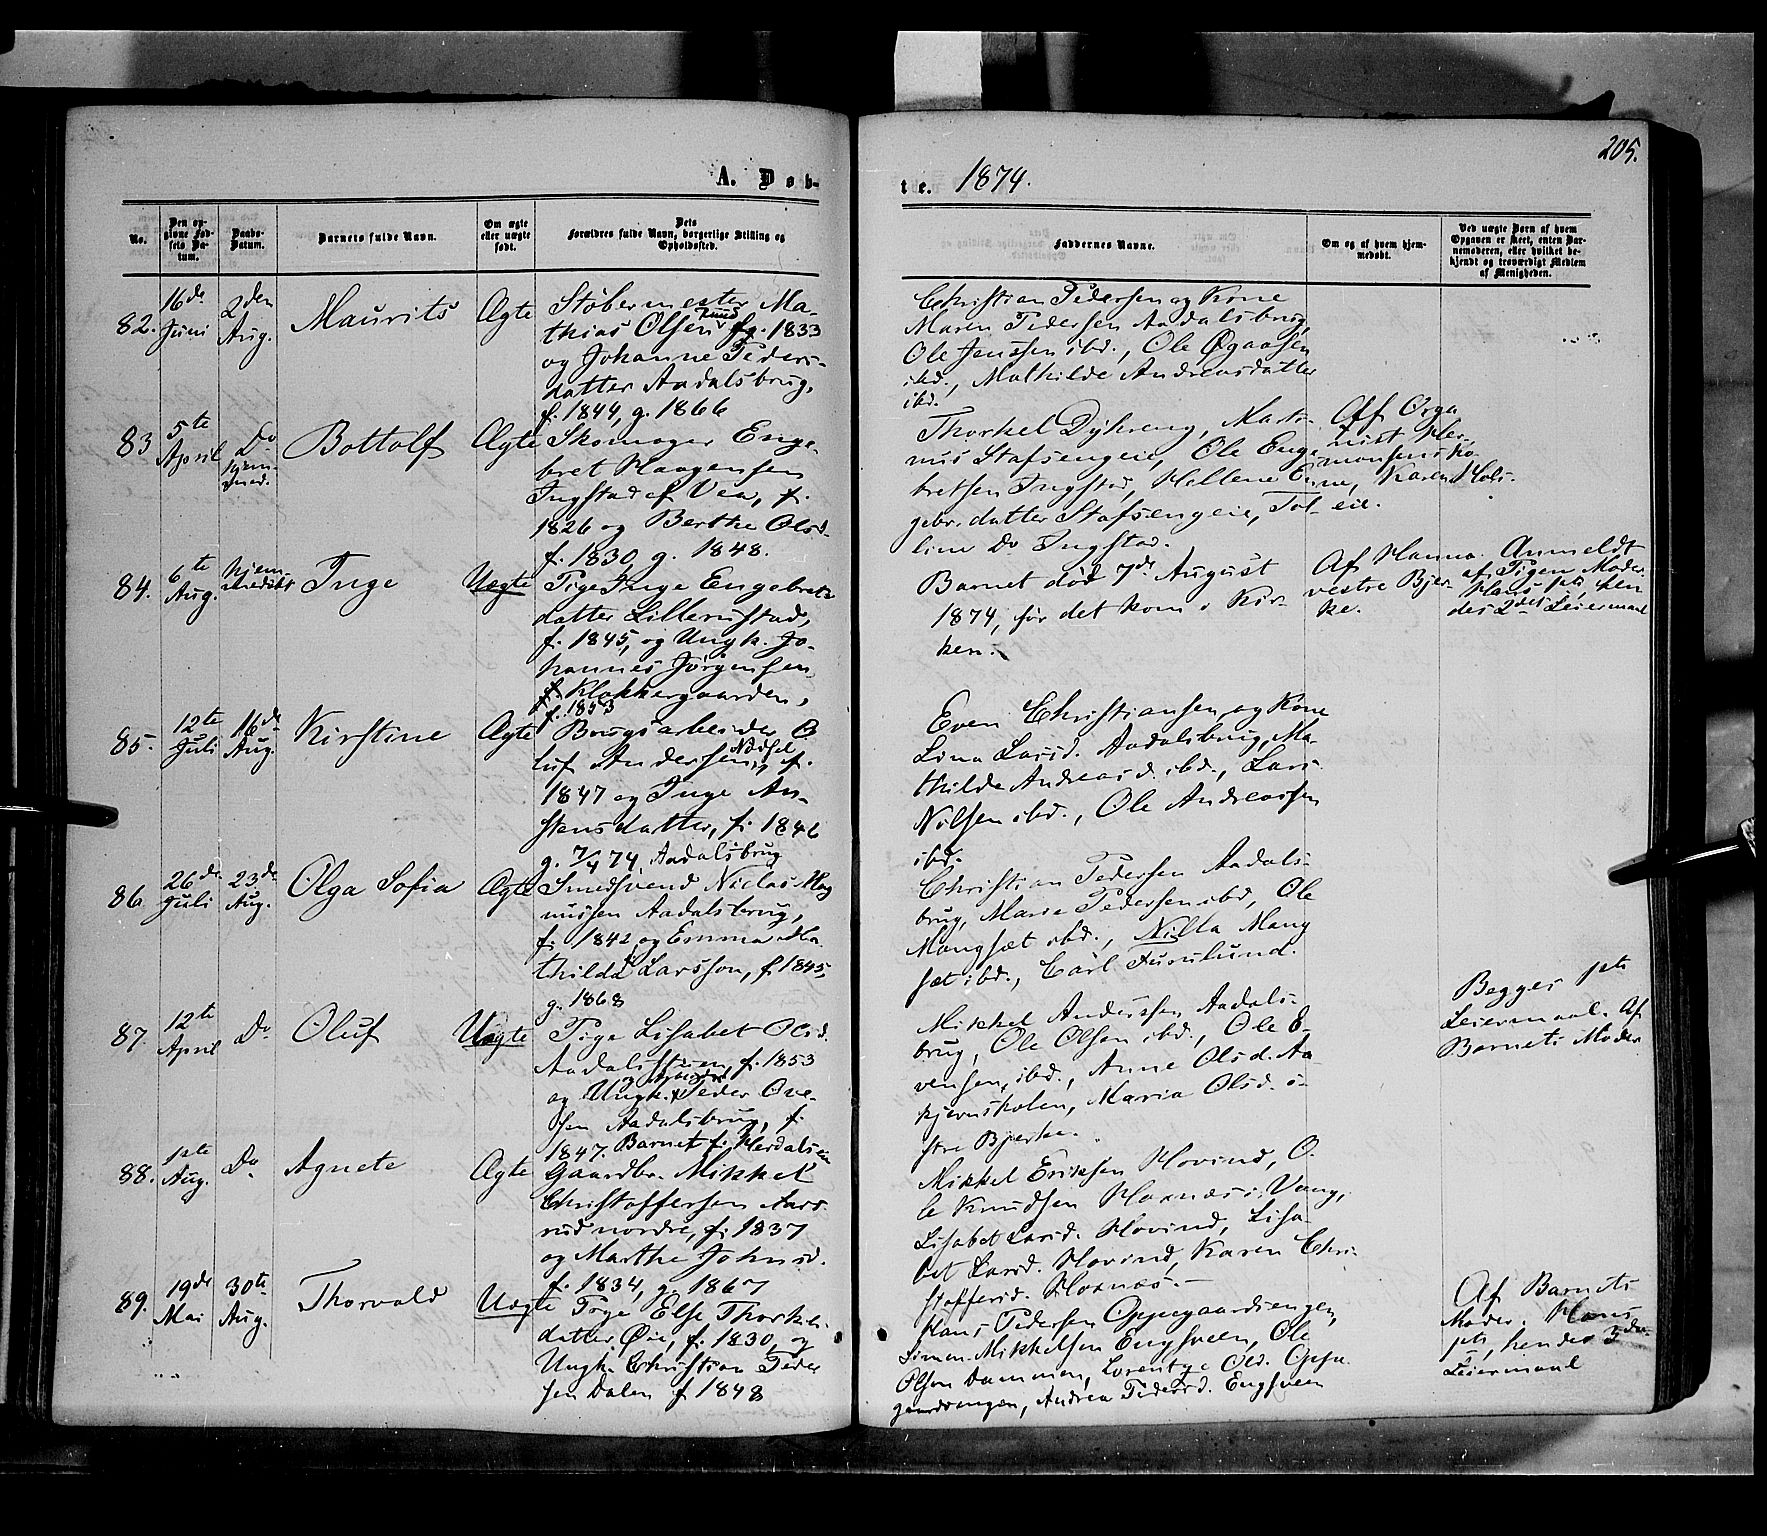 205.
A. Døb-
te. 1874.
No.
Den opgivne Fødsels Datum.
Daabs-Datum.
Barnets fulde Navn.
Om ægte eller uægte født.
Dets Forældres fulde Navn, borgerlige Stilling og Opholdssted.
Faddernes Navne.
Om og af hvem hjemmedøbt.
Ved uægte Børn af hvem Opgaven er skeet, enten Barnemoderen, eller hvilket bekjendt og troværdigt Medlem af Menigheden.
82. 16de Juni 2den Aug. Maurits Ægte
Støbermester Ma-
thias Olsen f. 1833
og Johanne Peders-
datter Aadalsbrug,
f. 1844, g. 1866
Christian Pedersen og Kone
Maren Pedersen Aadalsbrug,
Ole Jenssen ibd., Ole Øgaasen
ibd., Mathilde Andreasdatter
ibd.
83 5te April Do hjemmed. Bottolf Ægte
Skomager Enge-
bret Haagensen
Ingstad af Vea, f.
1826 og Berthe Olsd.
f. 1830, g. 1848.
Thorkel Dyhreng, Mart-
nus Stafsengeie, Ole Enge-
bretsen Ingstad, Hellene En-
gebr.datter Stafsengeie, Tal-
line Do Ingstad.
Af Orga
nist Her-
monsens Ko-
ne, Karen Hols-
eie.
84. 6te Aug. hjem-
medøbt Inge Uægte
Pige Inge Engebrets
datter Lillerustad,
f. 1845, og Ungk. Jo-
hannes Jörgensen
Klokkergaarden,
f. 1853
Barnet død 7de August
1874, før det kom i Kir-
ken.
Af Hanna
vestre Bjer-
ke.
Anmeldt
af Pigen Moder.
Hans 1ste, hen
des 2det Leiermaal
85. 12te Juli 16de Aug. Kirstine Ægte
Brugsarbeider O
luf Andersen Næsel, f.
1847 og Inge An-
stensdatter, f. 1846
g. 7/4 74, Aadalsbrug
Even Christiansen og Kone
Lina Larsd. Aadalsbrug, Ma-
thilde Andreasd. ibd., Lars
Nilsen ibd., Ole Andreassen
ibd.
86 26de Juli 23de Aug. Olga Sofia Ægte
Smedsvend Niclas Mag
nussen Aadalsbrug,
f. 1842 og Emma Ma-
thilda Larsson, f. 1845,
g. 1868
Christian Pedersen Aadals-
brug, Marie Pedersen ibd, Ole
Mangset ibd., Nilla Mang
set ibd., Carl Furulund.
87. 12te April Do Oluf Uægte
Pige Lisabet Olsd.
Aadalstuen, f. 1853
og Ungk. Arbeider Peder Ove-
sen Aadalsbrug, f.
1847. Barnet f. Hedalseie
Mikkel Anderssen Aadals-
brug, Ole Olsen ibd., Ole E-
vensen, ibd., Anne Olsd. Aa
kjernsholen, Maria Olsd. ø-
stre Bjerke.
Begges 1ste
Leiermaal. Af
Barnets Moder
88. 1ste Aug. Do Agnete Ægte
Gaardbr. Mikkel
Christoffersen Aas-
rud nordre, f. 1837
og Marthe Johnsd.
f. 1834, g. 1867
Mikkel Eriksen Hovind, O-
le Knudsen Hornæs i Vang,
Lisabet Larsd. Hovind, Lisa-
bet Larsd. Hovind, Karen Chri-
stoffersd. Hornæs.
89. 19de Mai 30te Aug. Thorvald Uægte
Pige Else Thorkels-
datter Øie, f. 1830, og
Ungk. Christian Peder
sen Dalen f. 1848
Hans Pedersen Oppegaardsengen,
Simen Mikkelsen Engsveen, Ole
Olsen Dammen, Lorentze Olsd. Oppe
gaardsengen, Andrea Pedersd. Engsveen
Af Barnets
Moder. Hans
1ste, hendes 3de
Leiermaal